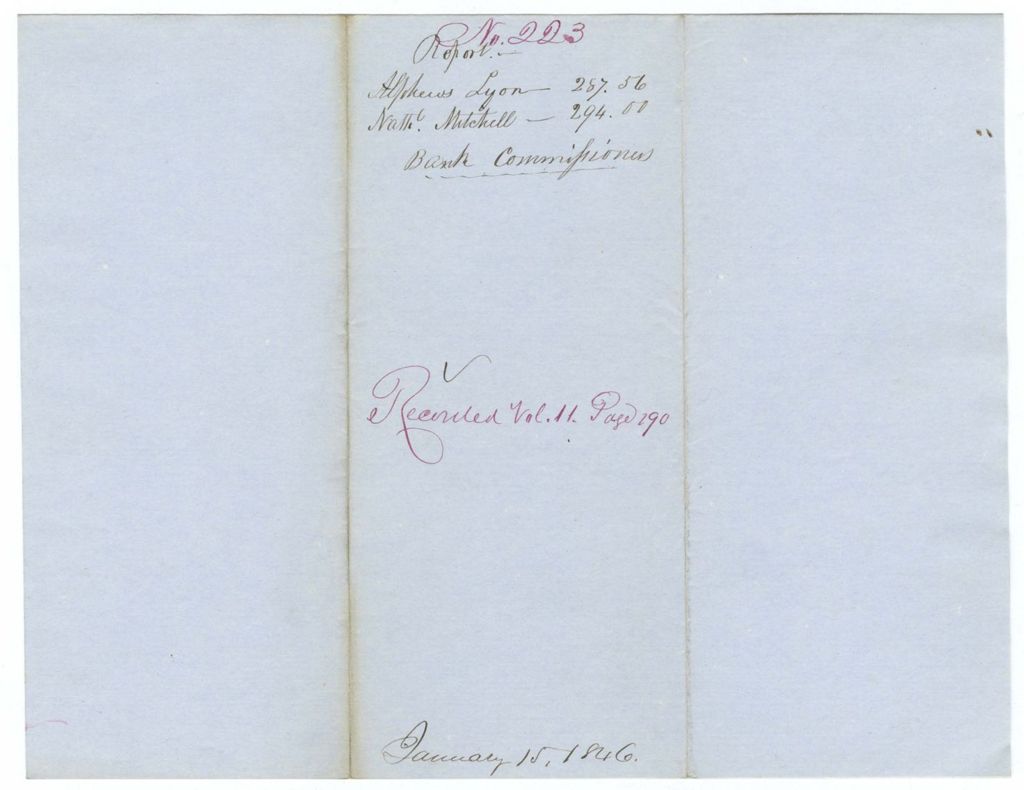 No. 223
Report.—
Alpheus Lyon — 287.56
Nathl. Mitchell — 294.00
Bank Commissioners
Recorded Vol. 11. Page 290
January 15, 1846.